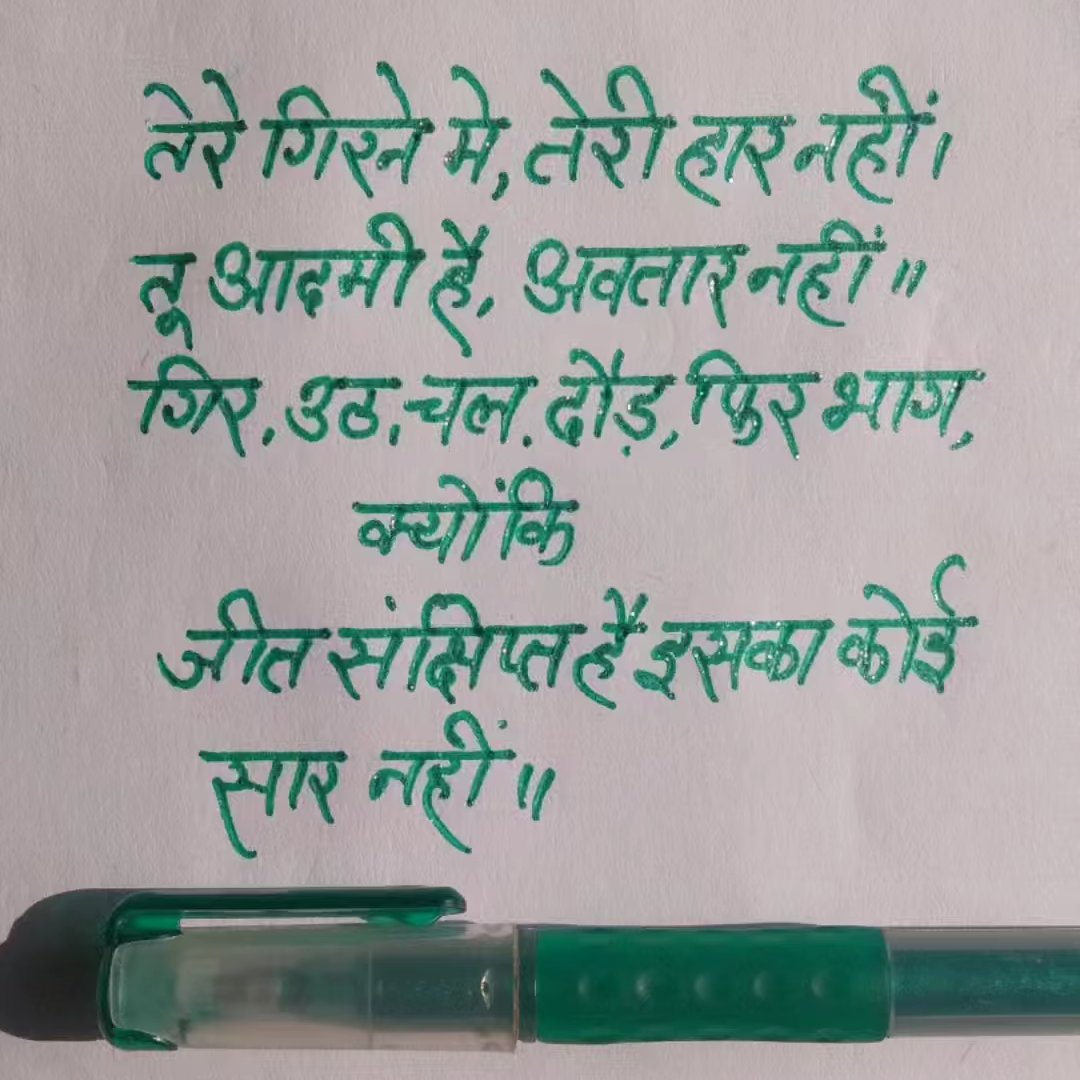 तेरे गिरने मे, तेरी हार नहीं।
तू आदमी है, अवतार नहीं॥
गिर, उठ, चल, दौड़, फिर भाग,
क्योंकि
जीत संक्षिप्त है इसका कोई
सार नहीं॥